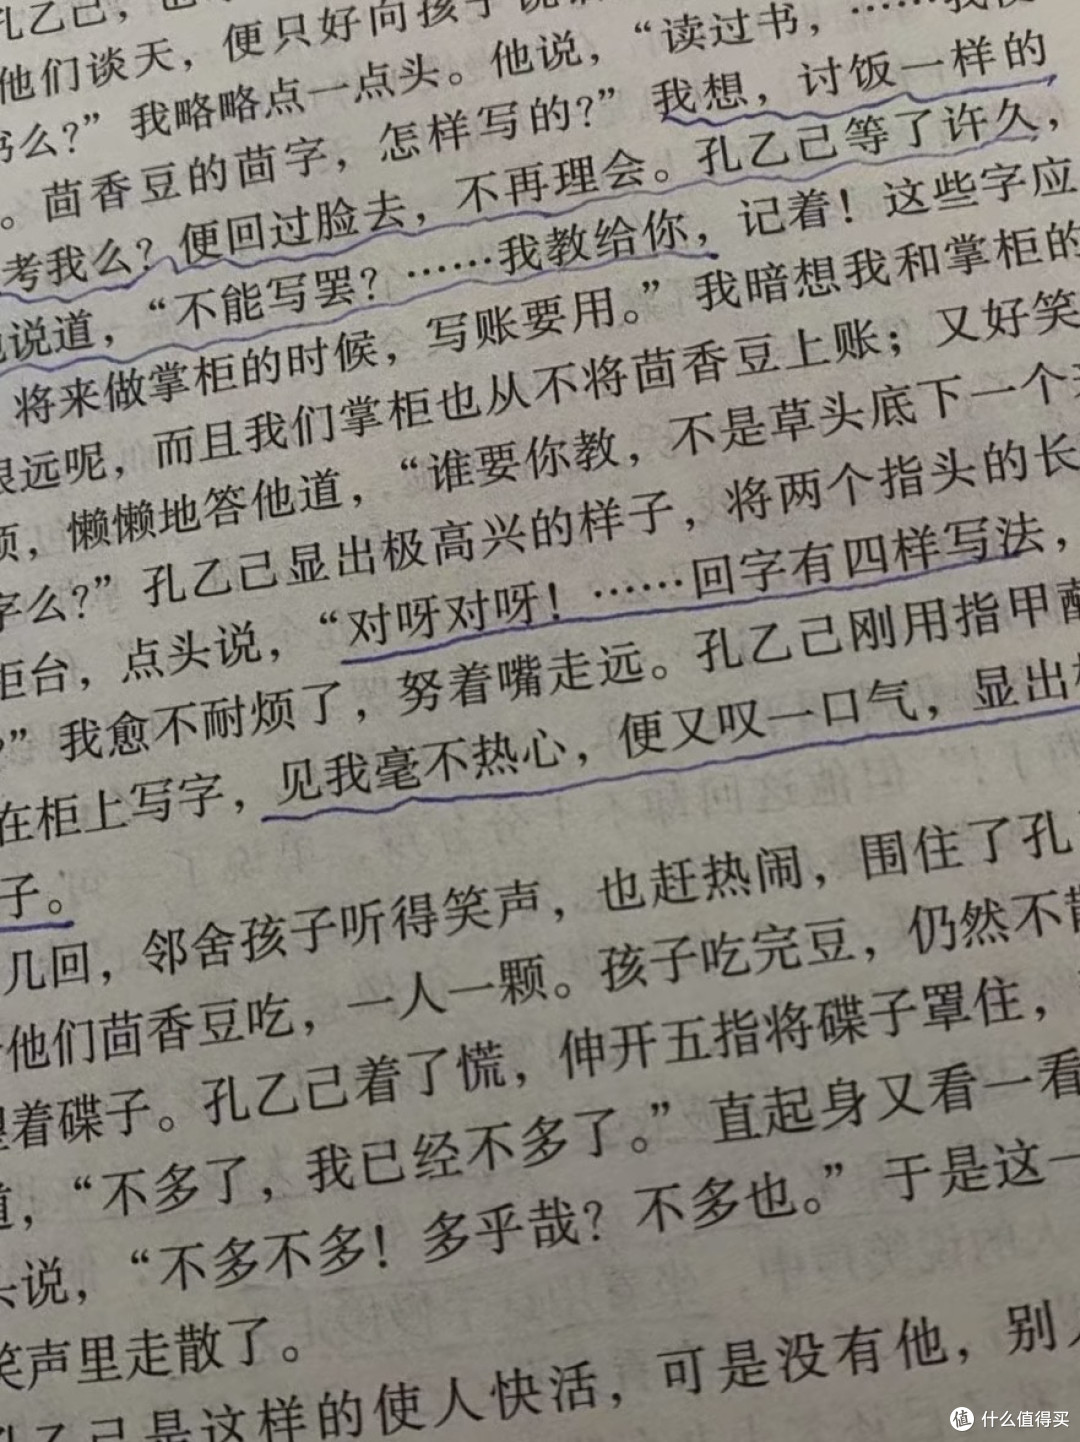 孔乙己，
他们谈天，便只好向孩子说
书么？”我略略点一点头。他说，“读过书，……我便
。茴香豆的茴字，怎样写的？”我想，讨饭一样的
考我么？便回过脸去，不再理会。孔乙己等了许久，
说道，“不能写罢？……我教给你，记着！这些字应
将来做掌柜的时候，写账要用。”我暗想我和掌柜的
很远呢，而且我们掌柜也从不将茴香豆上账；又好笑
烦，懒懒地答他道，“谁要你教，不是草头底下一个
字么？”孔乙己显出极高兴的样子，将两个指头的长
柜台，点头说，“对呀对呀！……回字有四样写法，
？”我愈不耐烦了，努着嘴走远。孔乙己刚用指甲蘸
在柜上写字，见我毫不热心，便又叹一口气，显出
子。
几回，邻舍孩子听得笑声，也赶热闹，围住了孔
他们茴香豆吃，一人一颗。孩子吃完豆，仍然不散
望着碟子。孔乙己着了慌，伸开五指将碟子罩住，
道，“不多了，我已经不多了。”直起身又看一看
头说，“不多不多！多乎哉？不多也。”于是这一
笑声里走散了。
孔乙己是这样的使人快活，可是没有他，别人
值 什么值得买